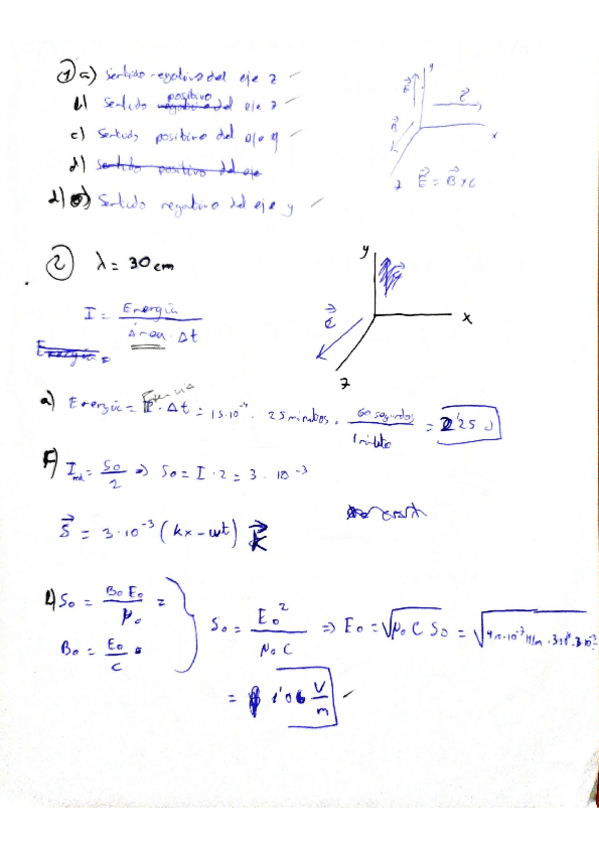 1 a) Sentido negativo del eje z
b) Sentido positivo del eje z
c) Sentido positivo del eje y
d) Sentido positivo del eje
d) Sentido negativo del eje y
y
x
z
E = B × C
2 λ = 30 cm
I = Energía / Área · Δt
Energía =
y
x
z
a) Energía = P · Δt = 15·10⁻⁴ · 25 minutos · 60 segundos / 1 minuto = 2'25 J
F) I = S₀/2 ⇒ S₀ = I · 2 = 3 · 10⁻³
S = 3·10⁻³ (kx - ωt) K
S₀ = B₀E₀/μ₀ =
B₀ = E₀/c
S₀ = E₀²/μ₀C ⇒ E₀ = √μ₀ C S₀ =
= 1'06 V/m